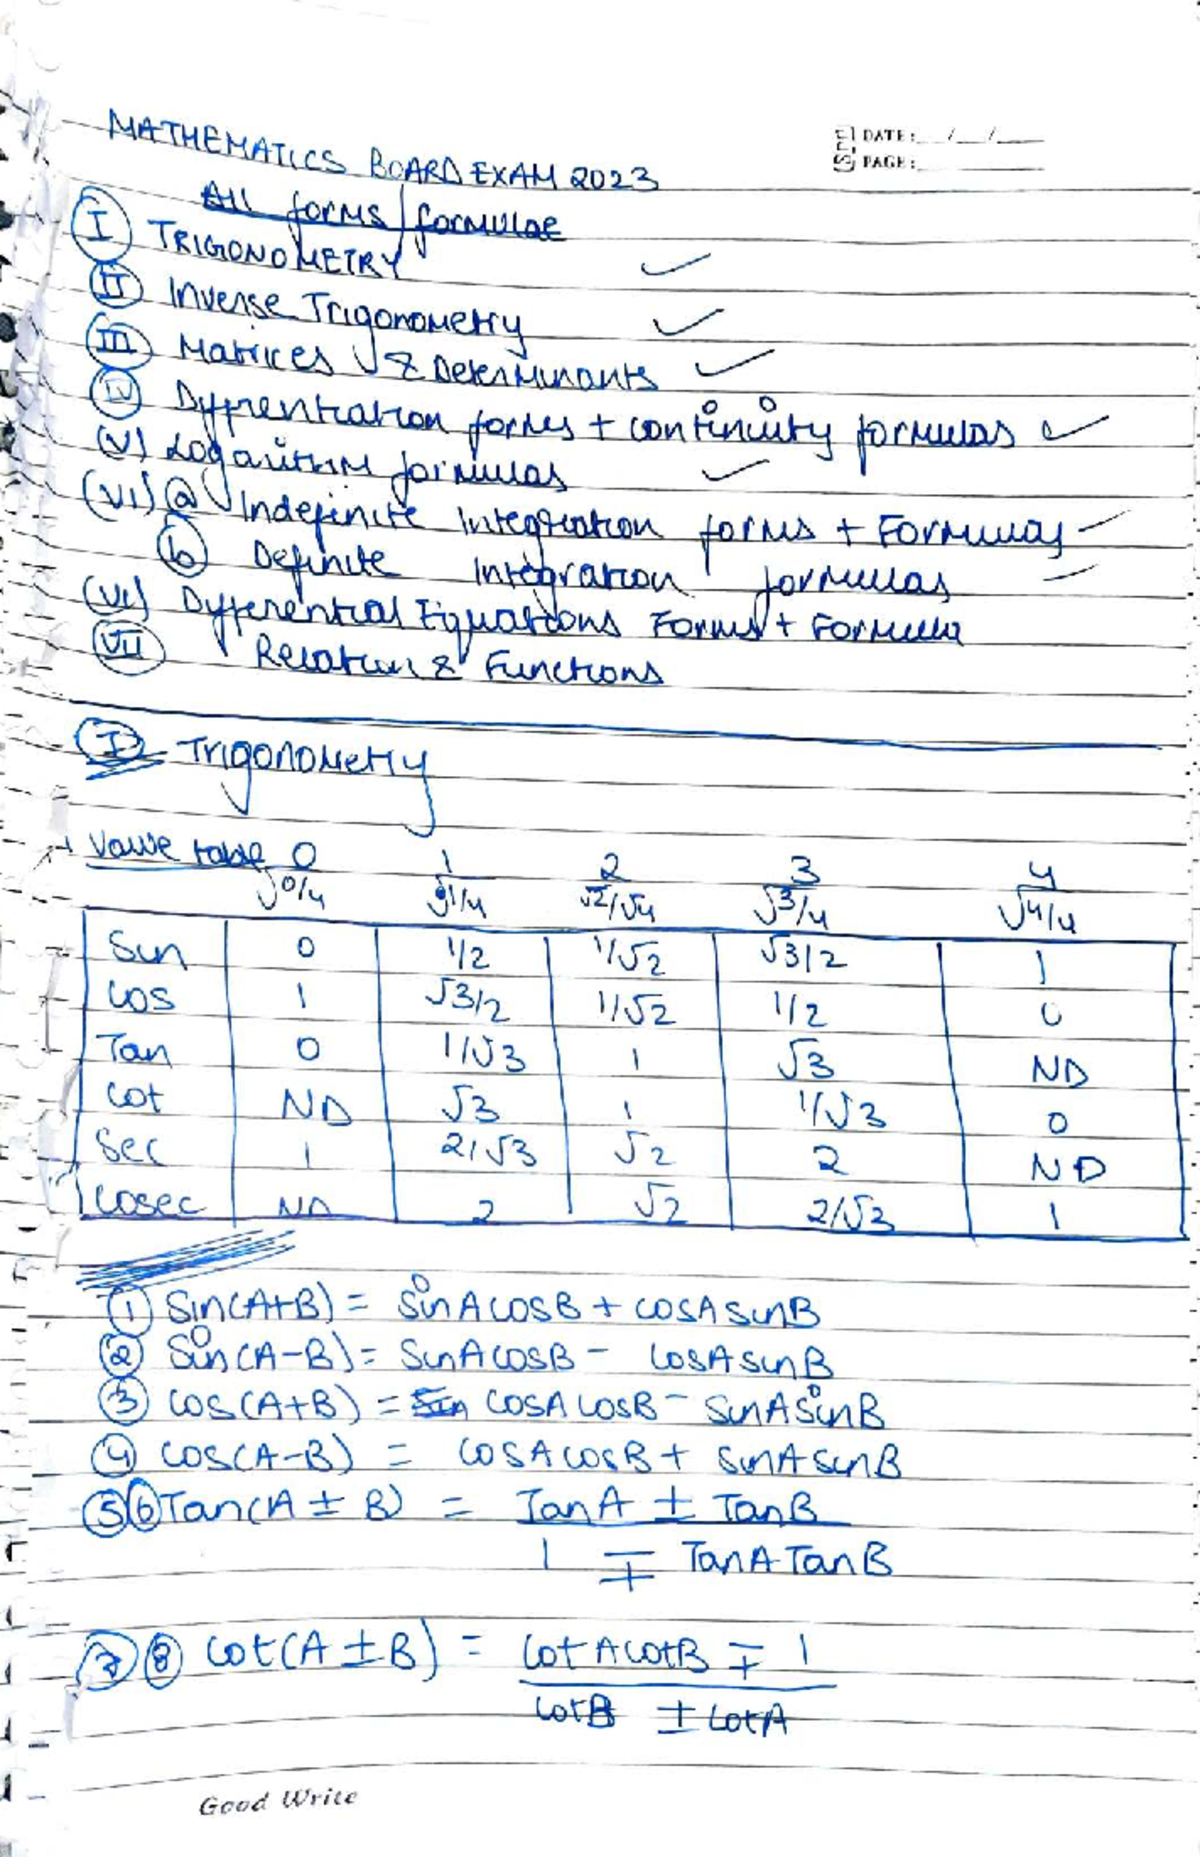 DATE: __/__/__
PAGE:
MATHEMATICS BOARD EXAM 2023
All forms/formulae
I TRIGONOMETRY ✓
II Inverse Trigonometry ✓
III Matrices & Determinants ✓
IV Diffrentiation forms + continuity formulas ✓
(V) Logarithm formulas ✓
(VI) a Indefinite Integration forms + Formulas
b Definite Integration formulas
(VII) Differential Equations Forms + Formula
VII Relation & Functions
I Trigonometry
Value table 0 1 2 3 4
√0/4 √1/4 √2/√4 √3/4 √4/4
Sin 0 1/2 1/√2 √3/2 1
cos 1 √3/2 1/√2 1/2 0
Tan 0 1/√3 1 √3 ND
cot ND √3 1 1/√3 0
Sec 1 2/√3 √2 2 ND
cosec ND 2 √2 2/√3 1
1 Sin(A+B) = SinACosB + COSASinB
2 Sin(A-B) = SinACosB - COSASinB
3 COS(A+B) = Sin COSACOSB - SinASinB
4 COS(A-B) = COSACOSB + SinASinB
5 6 Tan(A ± B) = TanA ± TanB
1 ∓ TanATanB
7 8 Cot(A ± B) = CotACotB ∓ 1
CotB ± CotA
Good Write